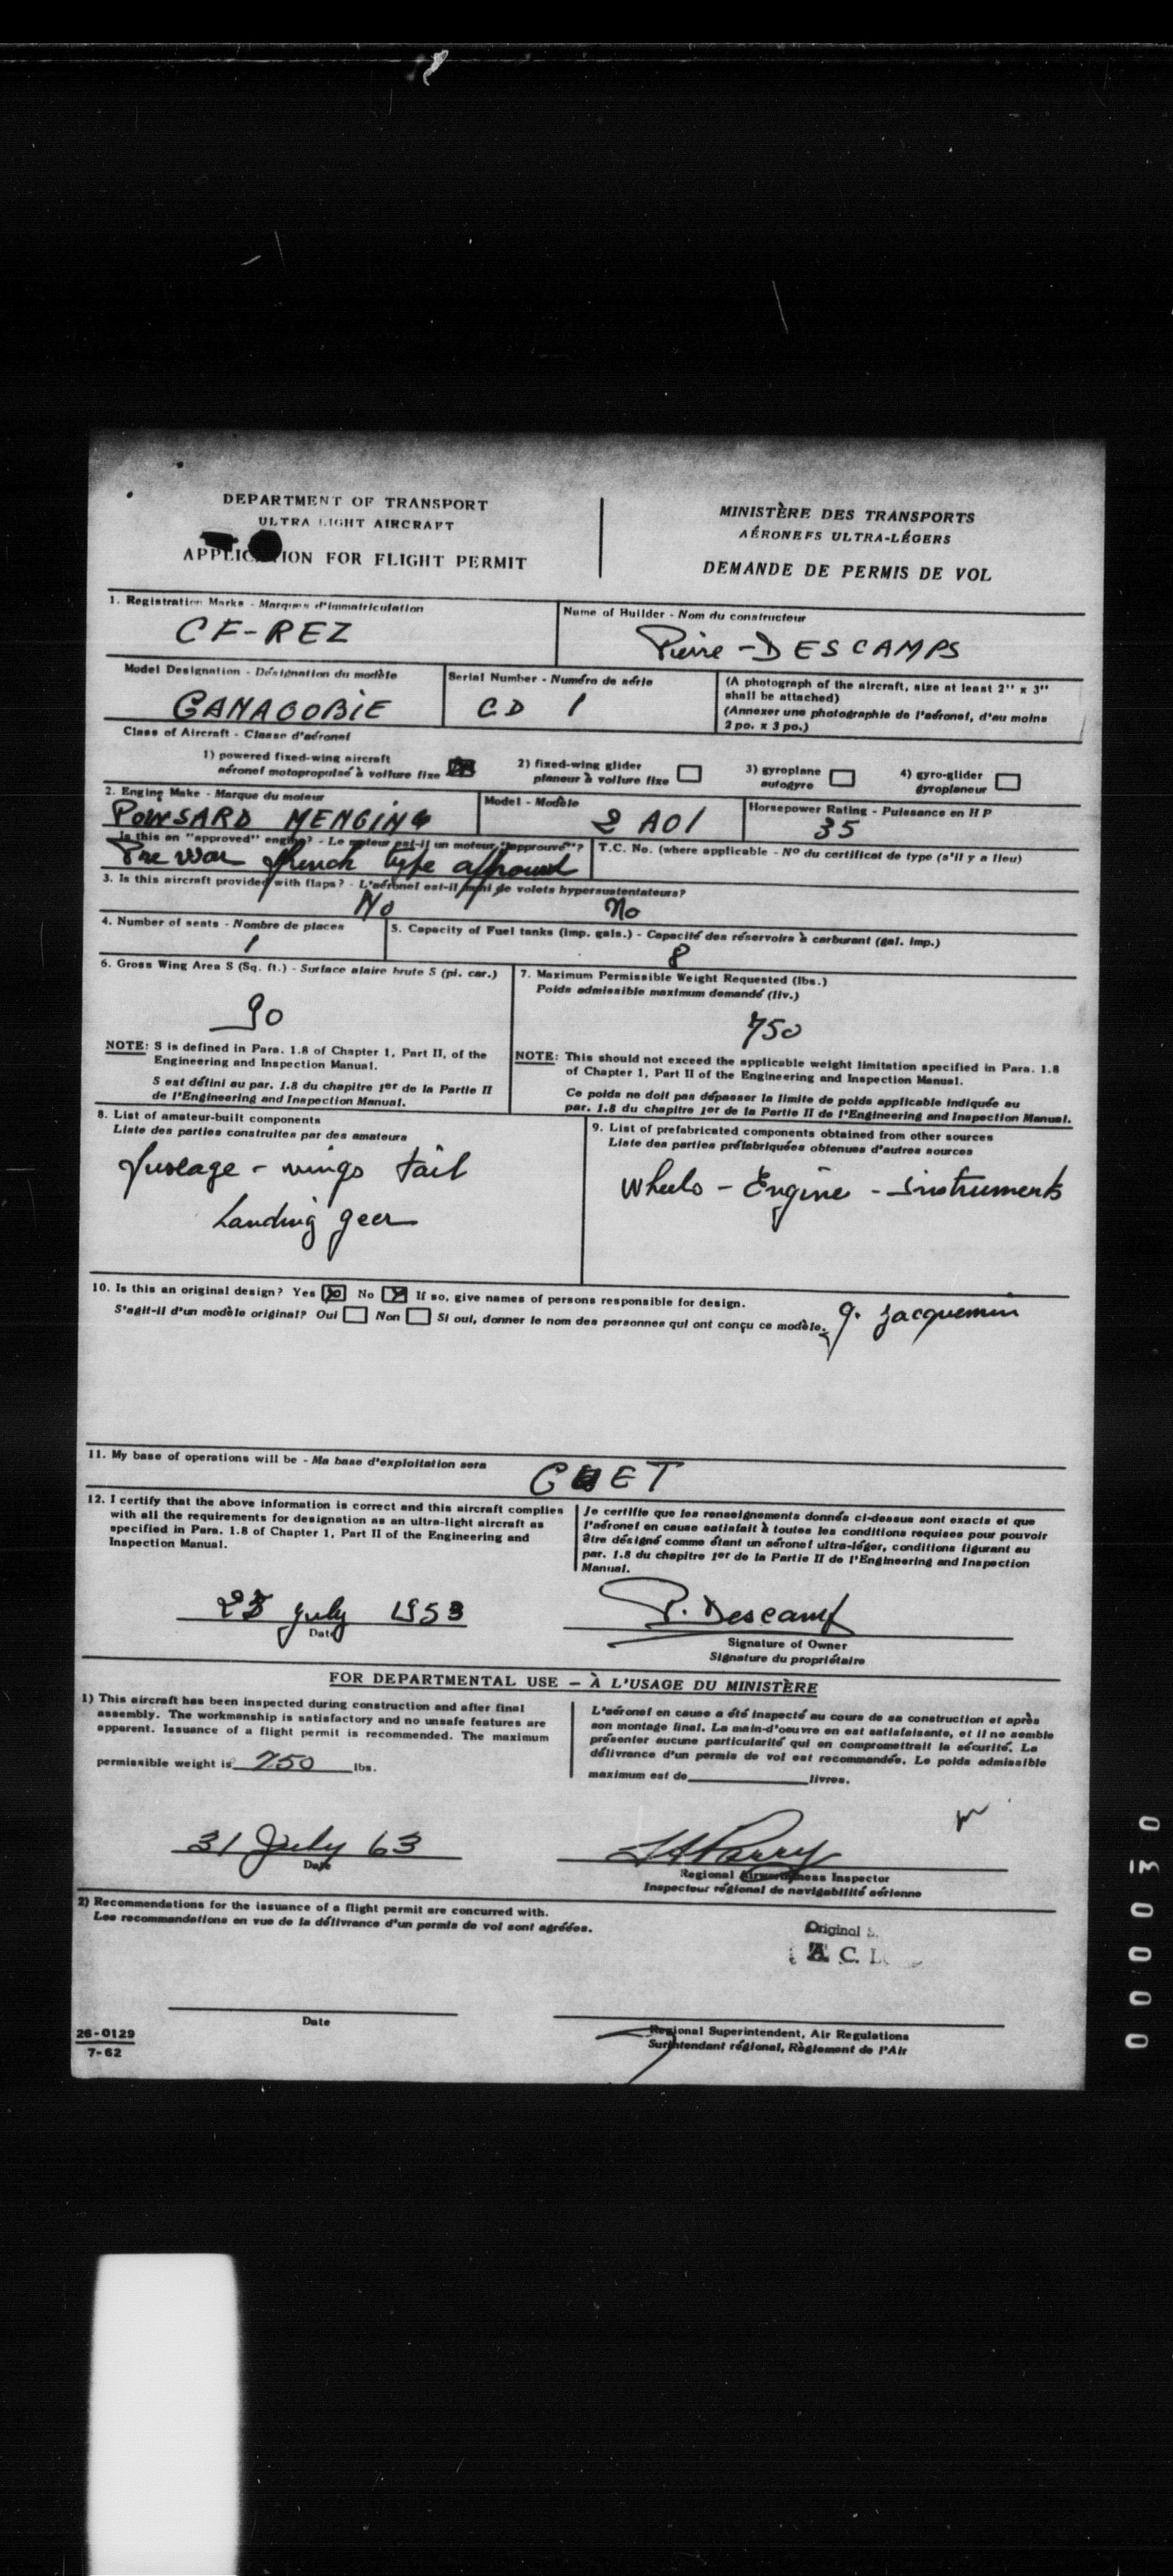 DEPARTMENT OF TRANSPORT
ULTRA LIGHT AIRCRAFT
APPLICATION FOR FLIGHT PERMIT
MINISTÈRE DES TRANSPORTS
AÉRONEFS ULTRA-LÉGERS
DEMANDE DE PERMIS DE VOL
1. Registration Marks - Marques d'immatriculation
CF-REZ
Name of Builder - Nom du constructeur
Pierre - DESCAMPS
Model Designation - Désignation du modèle
GANAGOBIE
Serial Number - Numéro de série
CD 1
(A photograph of the aircraft, size at least 2" x 3"
shall be attached)
(Annexer une photographie de l'aéronef, d'au moins
2 po. x 3 po.)
Class of Aircraft - Classe d'aéronef
1) powered fixed-wing aircraft
aéronef motopropulsé à voilure fixe
2) fixed-wing glider
planeur à voilure fixe
3) gyroplane
autogyre
4) gyro-glider
gyroplaneur
2. Engine Make - Marque du moteur
POINSARD MENGING
Model - Modèle
2 A01
Horsepower Rating - Puissance en H P
35
Is this an "approved" engine? - Le moteur est-il un moteur "approuvé"?
Pre war french type approved
T.C. No. (where applicable - Nº du certificat de type (s'il y a lieu)
3. Is this aircraft provided with flaps? - L'aéronef est-il muni de volets hypersustentateurs?
No No
4. Number of seats - Nombre de places
1
5. Capacity of Fuel tanks (imp. gals.) - Capacité des réservoirs à carburant (gal. imp.)
8
6. Gross Wing Area S (Sq. ft.) - Surface alaire brute S (pi. car.)
90
NOTE: S is defined in Para. 1.8 of Chapter 1, Part II, of the
Engineering and Inspection Manual.
S est défini au par. 1.8 du chapitre 1er de la Partie II
de l'Engineering and Inspection Manual.
7. Maximum Permissible Weight Requested (lbs.)
Poids admissible maximum demandé (liv.)
750
NOTE: This should not exceed the applicable weight limitation specified in Para. 1.8
of Chapter 1, Part II of the Engineering and Inspection Manual.
Ce poids ne doit pas dépasser la limite de poids applicable indiquée au
par. 1.8 du chapitre 1er de la Partie II de l'Engineering and Inspection Manual.
8. List of amateur-built components
Liste des parties construites par des amateurs
fuseage - wings tail
Landing geer
9. List of prefabricated components obtained from other sources
Liste des parties préfabriquées obtenues d'autres sources
wheels - Engine - instruments
10. Is this an original design? Yes No If so, give names of persons responsible for design.
S'agit-il d'un modèle original? Oui Non Si oui, donner le nom des personnes qui ont conçu ce modèle.
G. Jacquemin
11. My base of operations will be - Ma base d'exploitation sera
12. I certify that the above information is correct and this aircraft complies
with all the requirements for designation as an ultra-light aircraft as
specified in Para. 1.8 of Chapter 1, Part II of the Engineering and
Inspection Manual.
Je certifie que les renseignements donnés ci-dessus sont exacts et que
l'aéronef en cause satisfait à toutes les conditions requises pour pouvoir
être désigné comme étant un aéronef ultra-léger, conditions figurant au
par. 1.8 du chapitre 1er de la Partie II de l'Engineering and Inspection
Manual.
July 1953
Date
P. Descamps
Signature of Owner
Signature du propriétaire
FOR DEPARTMENTAL USE - À L'USAGE DU MINISTÈRE
1) This aircraft has been inspected during construction and after final
assembly. The workmanship is satisfactory and no unsafe features are
apparent. Issuance of a flight permit is recommended. The maximum
permissible weight is 750 lbs.
L'aéronef en cause a été inspecté au cours de sa construction et après
son montage final. La main-d'oeuvre en est satisfaisante, et il ne semble
présenter aucune particularité qui en compromettrait la sécurité. La
délivrance d'un permis de vol est recommandée. Le poids admissible
maximum est de livres.
31 July 63
Date
Regional Airworthiness Inspector
Inspecteur régional de navigabilité aérienne
2) Recommendations for the issuance of a flight permit are concurred with.
Les recommandations en vue de la délivrance d'un permis de vol sont agréées.
Original
A. C. L
Date
Regional Superintendent, Air Regulations
Surintendant régional, Règlement de l'Air
26-0129
7-62
000030